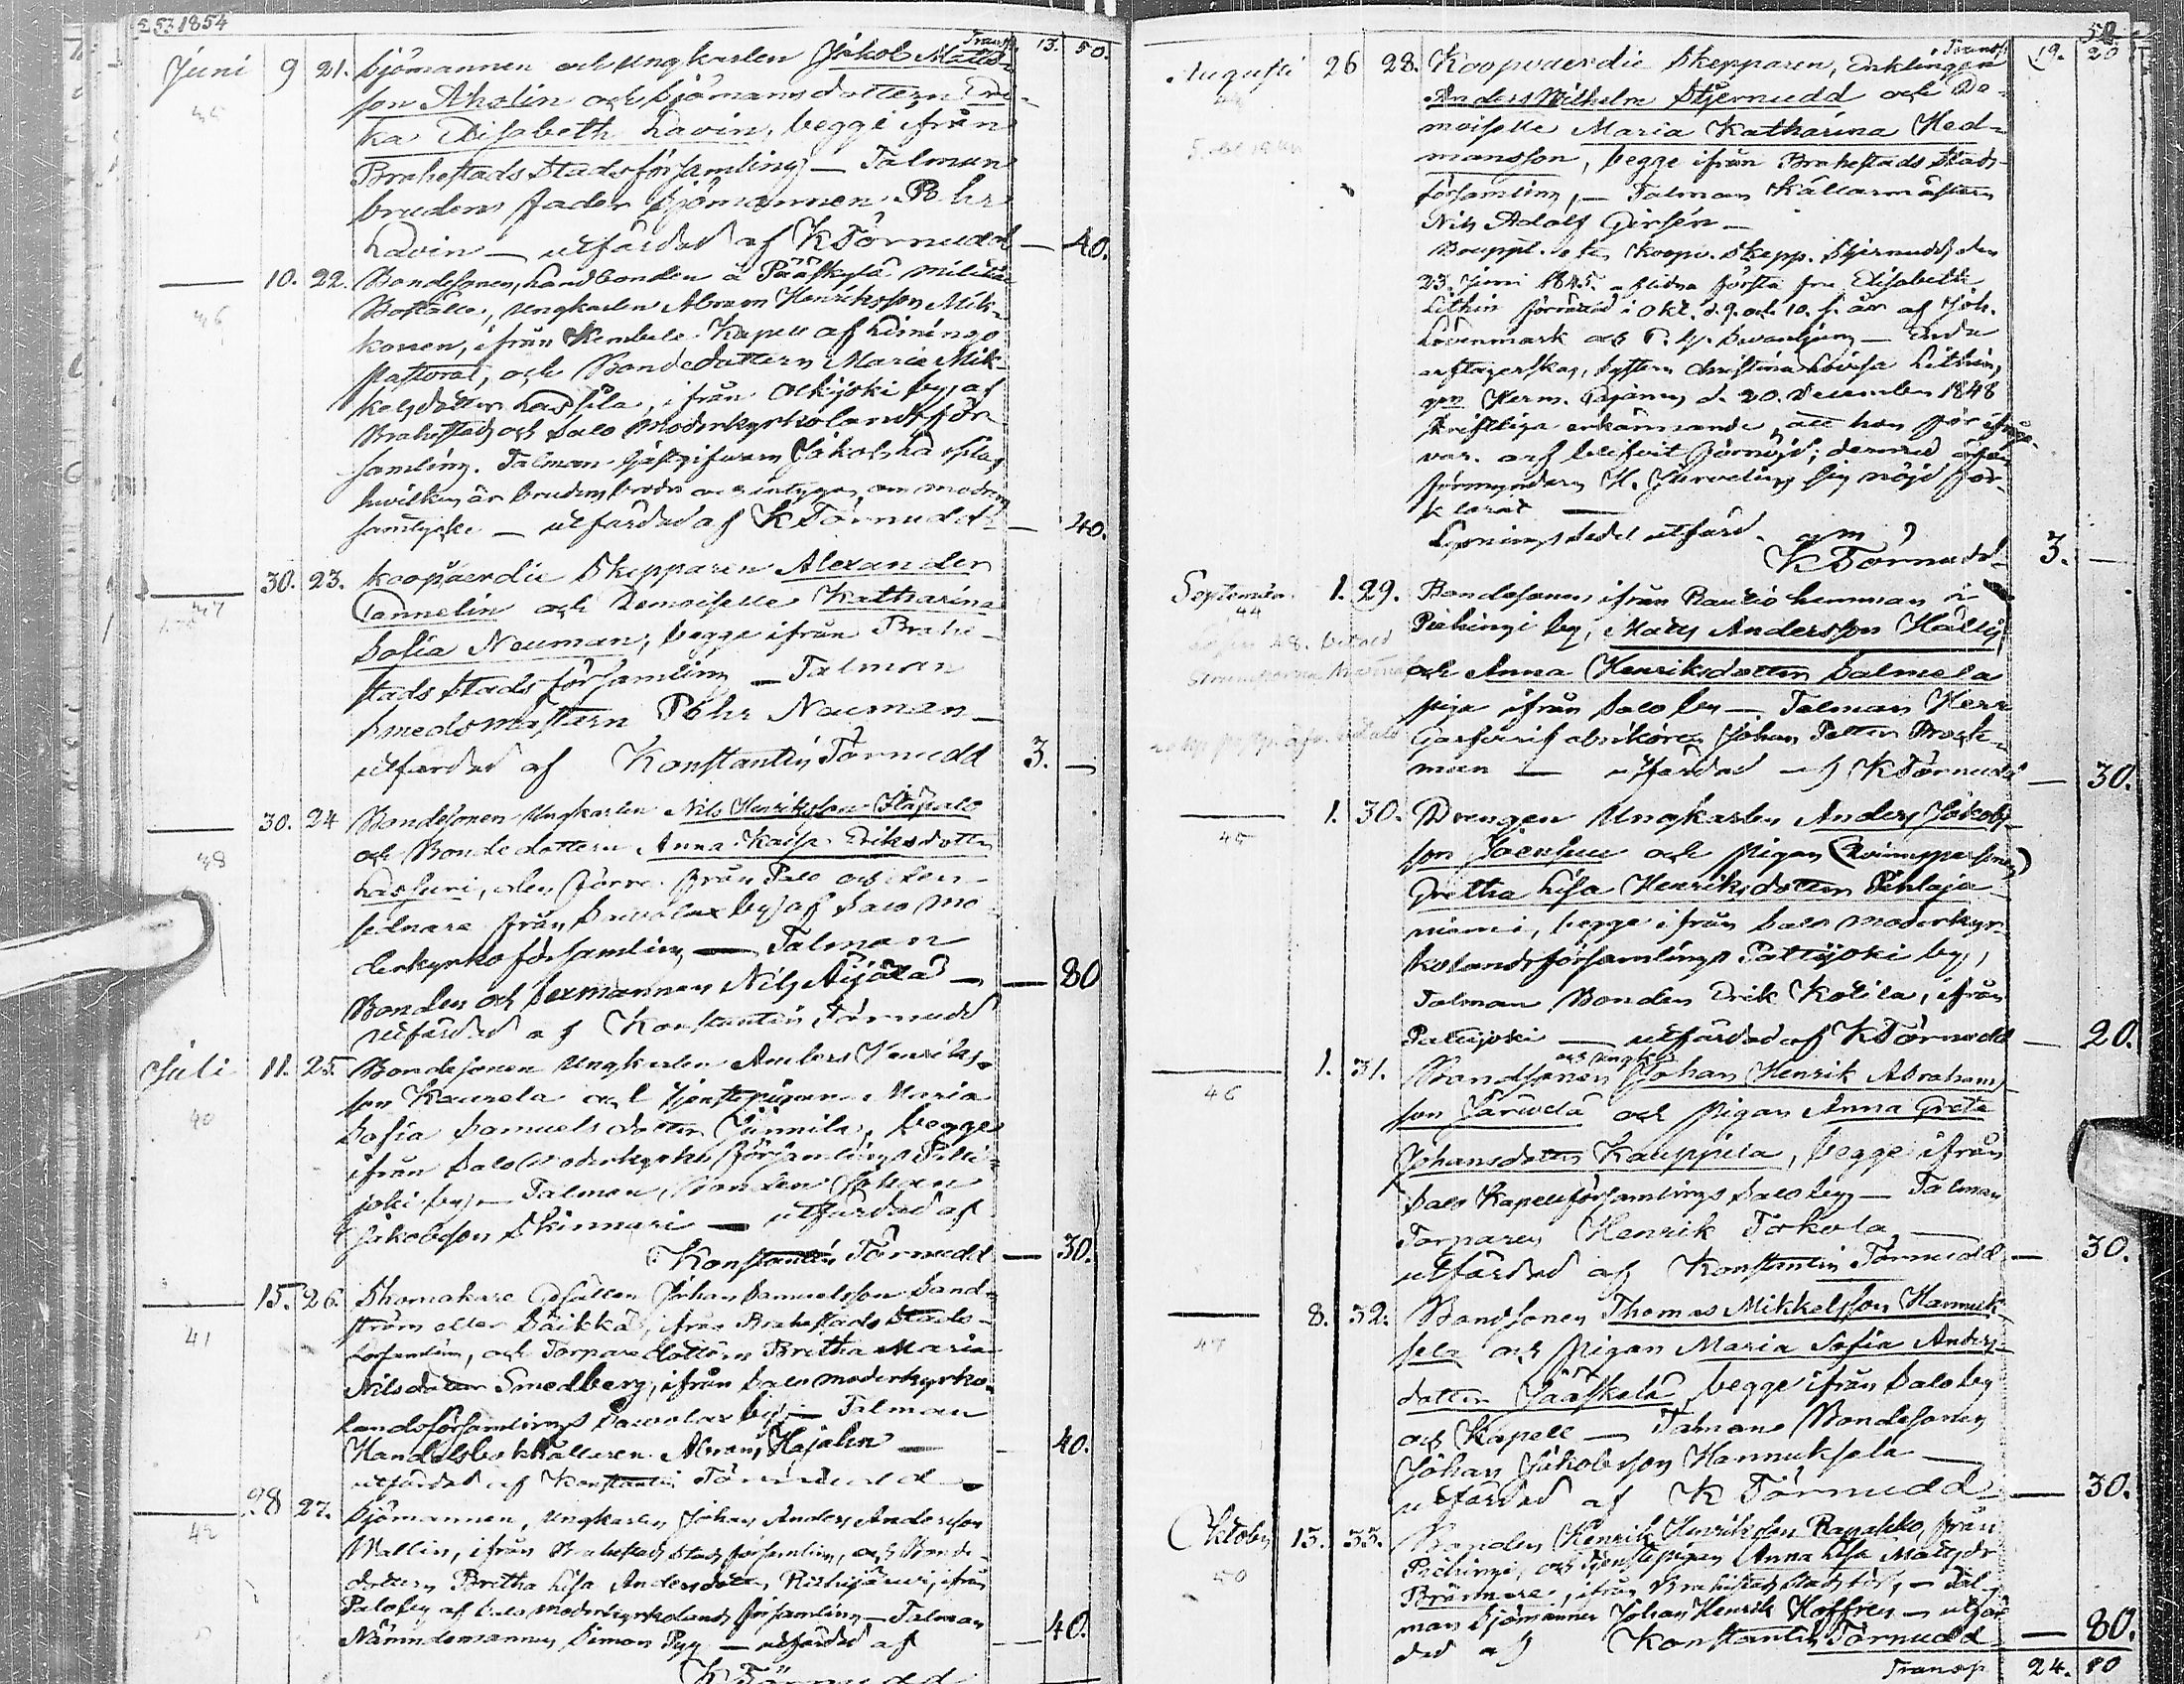 253 1854
Transp. 13. 50.
Juni 9 21. Sjömannen och Ungkarlen Jakob Matts-
son Aholin och Sjömansdottern Ul-
ka Elisabeth Lavin, begge ifrån
Brahestads Stadsförsamling — Talman
brudens fader Sjömannen P. hr
Lavin — utfärdad af KTörnudd — 40.
10. 22. Bondesonen, Landbonden å Pääskylä Militiæ
Boställe, Ungkarlen Abram Henriksson Mik-
konen, ifrån Kembele Kapell af Limingo
Pastorat, och Bondedottern Maria Mik-
kelsdotter Lassila, ifrån Olkijoki by, af
Brahestads och Salo Moderkyrkolandsför-
samling. Talman Gästgifvaren Jakob Lassila,
hvilken är brudens broder och intygar om modrens
samtycke — utfärdad af KTörnudd — 40.
30. 23. Koopvaerdie Skepparen Alexander
Tannelin och Demoiselle Katharina
Sofia Neuman, begge ifrån Brahe-
stads Stadsförsamling — Talman
Smedsmästern Pehr Neuman —
utfärdad af Konstantin Törnudd 3. —
30. 24 Bondesonen Ungkarlen Nils Henriksson Ylipalo
och Bondedottern Anna Kaisa Eriksdotter
Lassuri, den förre från Palo och den
sednare från Savolax by af Salo Mo-
derkyrkoförsamling — Talman
Bonden och Sexmannen Nils Äijälä — — 80
utfärdad af Konstantin Törnudd
Juli 11. 25. Bondesonen Ungkarlen Anders Henriks-
son Kaurela och tjenstepigan Maria
Sofia Samuelsdotter Junnila, begge
ifrån Salo Moderkyrko församlings Patti-
joki by — Talman, Bonden Johan
Jakobsson Skinnari — utfärdad af
Konstantin Törnudd — 30.
15. 26. Skomakare Gesällen Johan Samuelsson Sand-
ström eller Säikkä, ifrån Brahestads Stads-
församling, och Torparedottern Bretha Maria
Nilsdotter Smedberg, ifrån Salo moderkyrko-
landsförsamlings Savolax by — Talman
Handelsbokhållaren Abram Hajalin — — 40.
utfärdad af Konstantin Törnudd
28 27. Sjömannen, Ungkarlen Johan Anders Andersson
Wallin, ifrån Brahestads Stads församling, och Bonde-
dottern Bretha Lisa Andersdotter Riihijärvi, ifrån
Palo by af Salo moderkyrkolands församling — Talman
Nämndemannen Simon Pyy — utfärdad af — 40.
KTörnudd
52
Transp. 19. 20
Augusti 26 28. Koopvaerdie Skepparen, Enklingen
Anders Wilhelm Stjernudd och De-
moiselle Maria Katharina Hed-
mansson, begge ifrån Brahestads Stads-
församling, — Talman Källarmästaren
Nils Adolf Girsén —
Bouppt. efter Koopv. Skepp. Stjernudds den
23. Juni 1845. aflidna första fru Elisabeth
Lithén förrättad i Okt. d. 9. och 10. s. år af Joh.
Lövenmark och P. G. Svanljung — Enda
arftagerskan, systern Christina Lovisa Lithén,
gen Herm. d. 20. December 1848
skriftliga erkännande, att hon för
var. arf blifvit förnöjd; dermed äfven
förmyndaren H. sig nöjd för-
klarat —
Lysningssedel utfärd.
KTörnudd 3. —
September 1. 29. Bondesonen ifrån Rautio hemman i
44
Piehingi by, Mats Andersson Hälly,
och Anna Henriksdotter Salmela
piga ifrån Salo by — Talman Herr
Garfverifabrikören Johan Petter Brock-
man — utfärdad af KTörnudd — 30.
1. 30. Drengen Ungkarlen Anders Jakobs-
45
son Joensuu och pigan (Qvinnspersonen)
Gretha Lisa Henriksdotter Pihlaja-
niemi, begge ifrån Salo moderkyr-
kolandsförsamlings Pattijoki by,
Talman Bonden Erik Kotila, ifrån
Pattijoki — utfärdad af KTörnudd — 20.
1. 31. Bondsonen och Ungkarl Johan Henrik Abrahams-
46
son Järvelä och pigan Anna Greta
Johansdotter Kauppila, begge ifrån
Salo Kapellförsamlings Salo by — Talman
Torparen Henrik Tokola
utfärdad af Konstantin Törnudd — 30.
8. 32. Bondsonen Thomas Mikkelsson Hannuk-
47
sela och Pigan Maria Sofia Anders-
dotter Jääskelä, begge ifrån Salo by
och Kapell — Talman Bondesonen
Johan Jakobsson Hannuksela —
utfärdad af K Törnudd — 30.
Oktober 13. 33. Bonden Henrik Henriksson Rapakko, från
50
Piehingi, och Tjenstepigan Anna Lisa Matsdr
ifrån Brahestads Stadsför, — Tal-
man Sjömannen Johan Henrik Hoffren — utfär-
dad af Konstantin Törnudd — 80.
Transp 24. 80